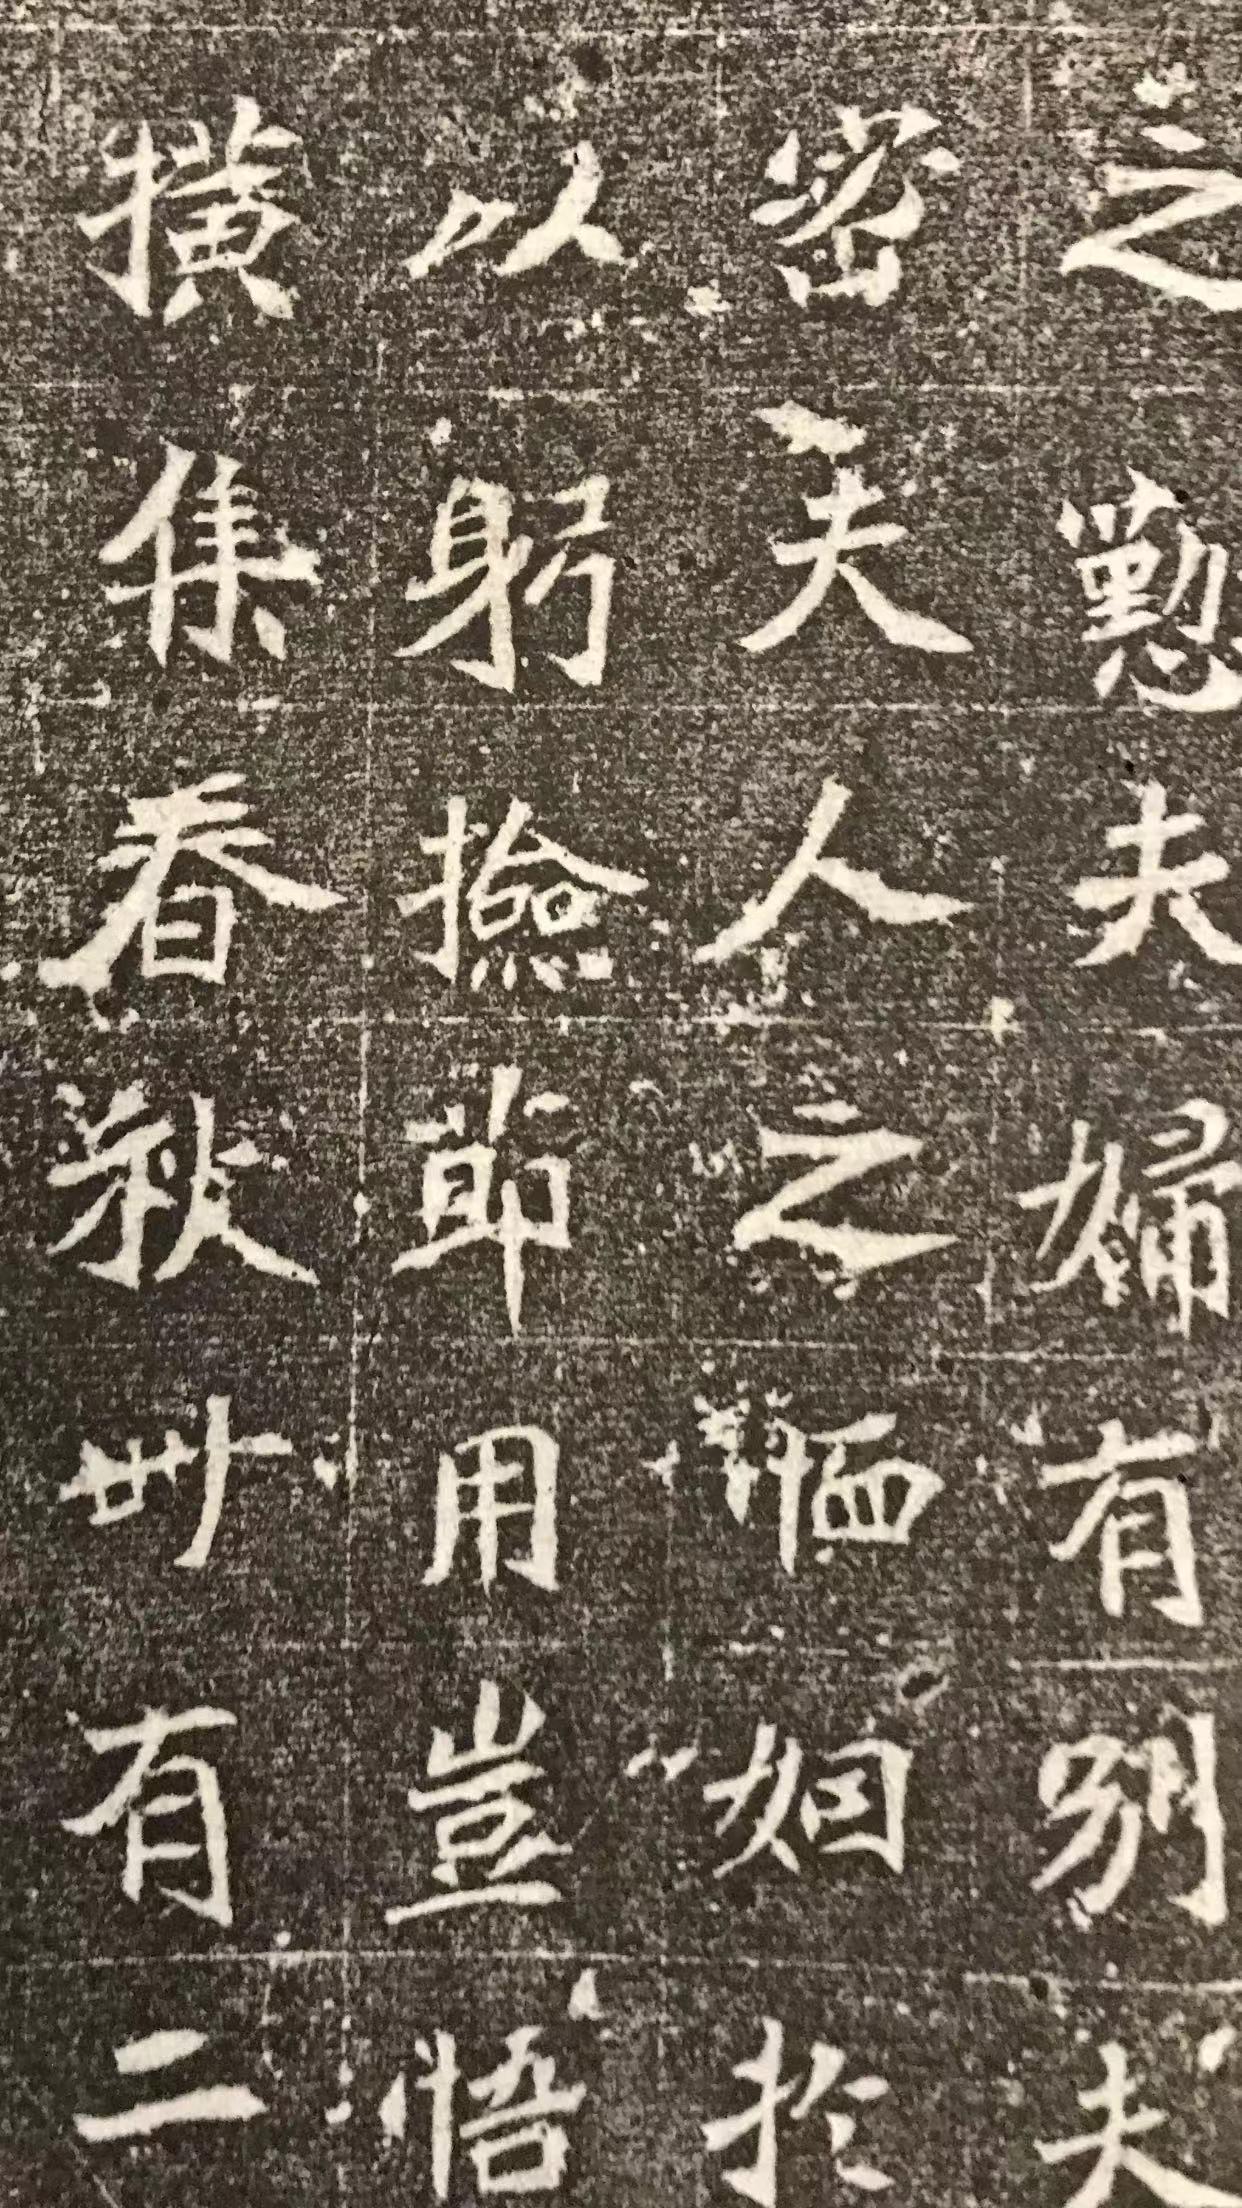 之懃夫婦有別夫
密夫人之恤姻於
以躬撿節用豈悟
撗集春秋卅有二